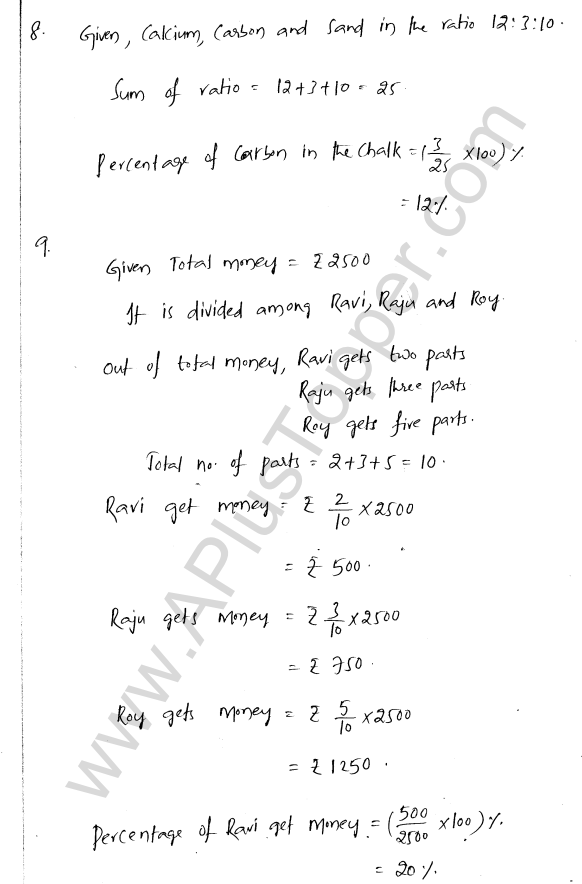 8. Given, Calcium, Carbon and Sand in the ratio 12:3:10.
Sum of ratio = 12+3+10 = 25.
Percentage of Carbon in the Chalk = (3/25 ×100) %
= 12%.
9.
Given Total money = ₹2500
It is divided among Ravi, Raju and Roy.
Out of total money, Ravi gets two parts
Raju gets three parts
Roy gets five parts.
Total no. of parts = 2+3+5 = 10.
Ravi get money = ₹ 2/10 ×2500
= ₹ 500.
Raju gets Money = ₹ 3/10 ×2500
= ₹ 750.
Roy gets Money = ₹ 5/10 ×2500
= ₹1250.
Percentage of Ravi get Money = (500/2500 ×100) %.
= 20%.
www.APlusTopper.com